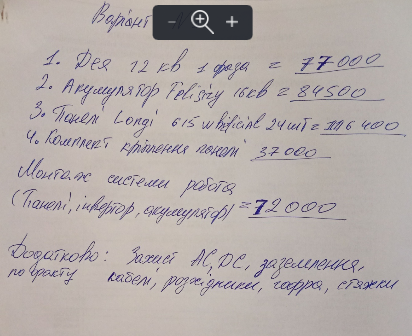 Варіант
1. Дея 12 кв 1 фаза = 77000
2. Акумулятор Felicity 16кв = 84500
3. Панелі Longi 615 w bificial 24шт = 116 400
4. Комплект кріплення панелі 37000
Монтаж системи робота
(Панелі, інвертор, акумулятор) = 72000
Додатково: Захист AC, DC, заземлення,
по факту кабелі, розхідники, гофра, стяжки